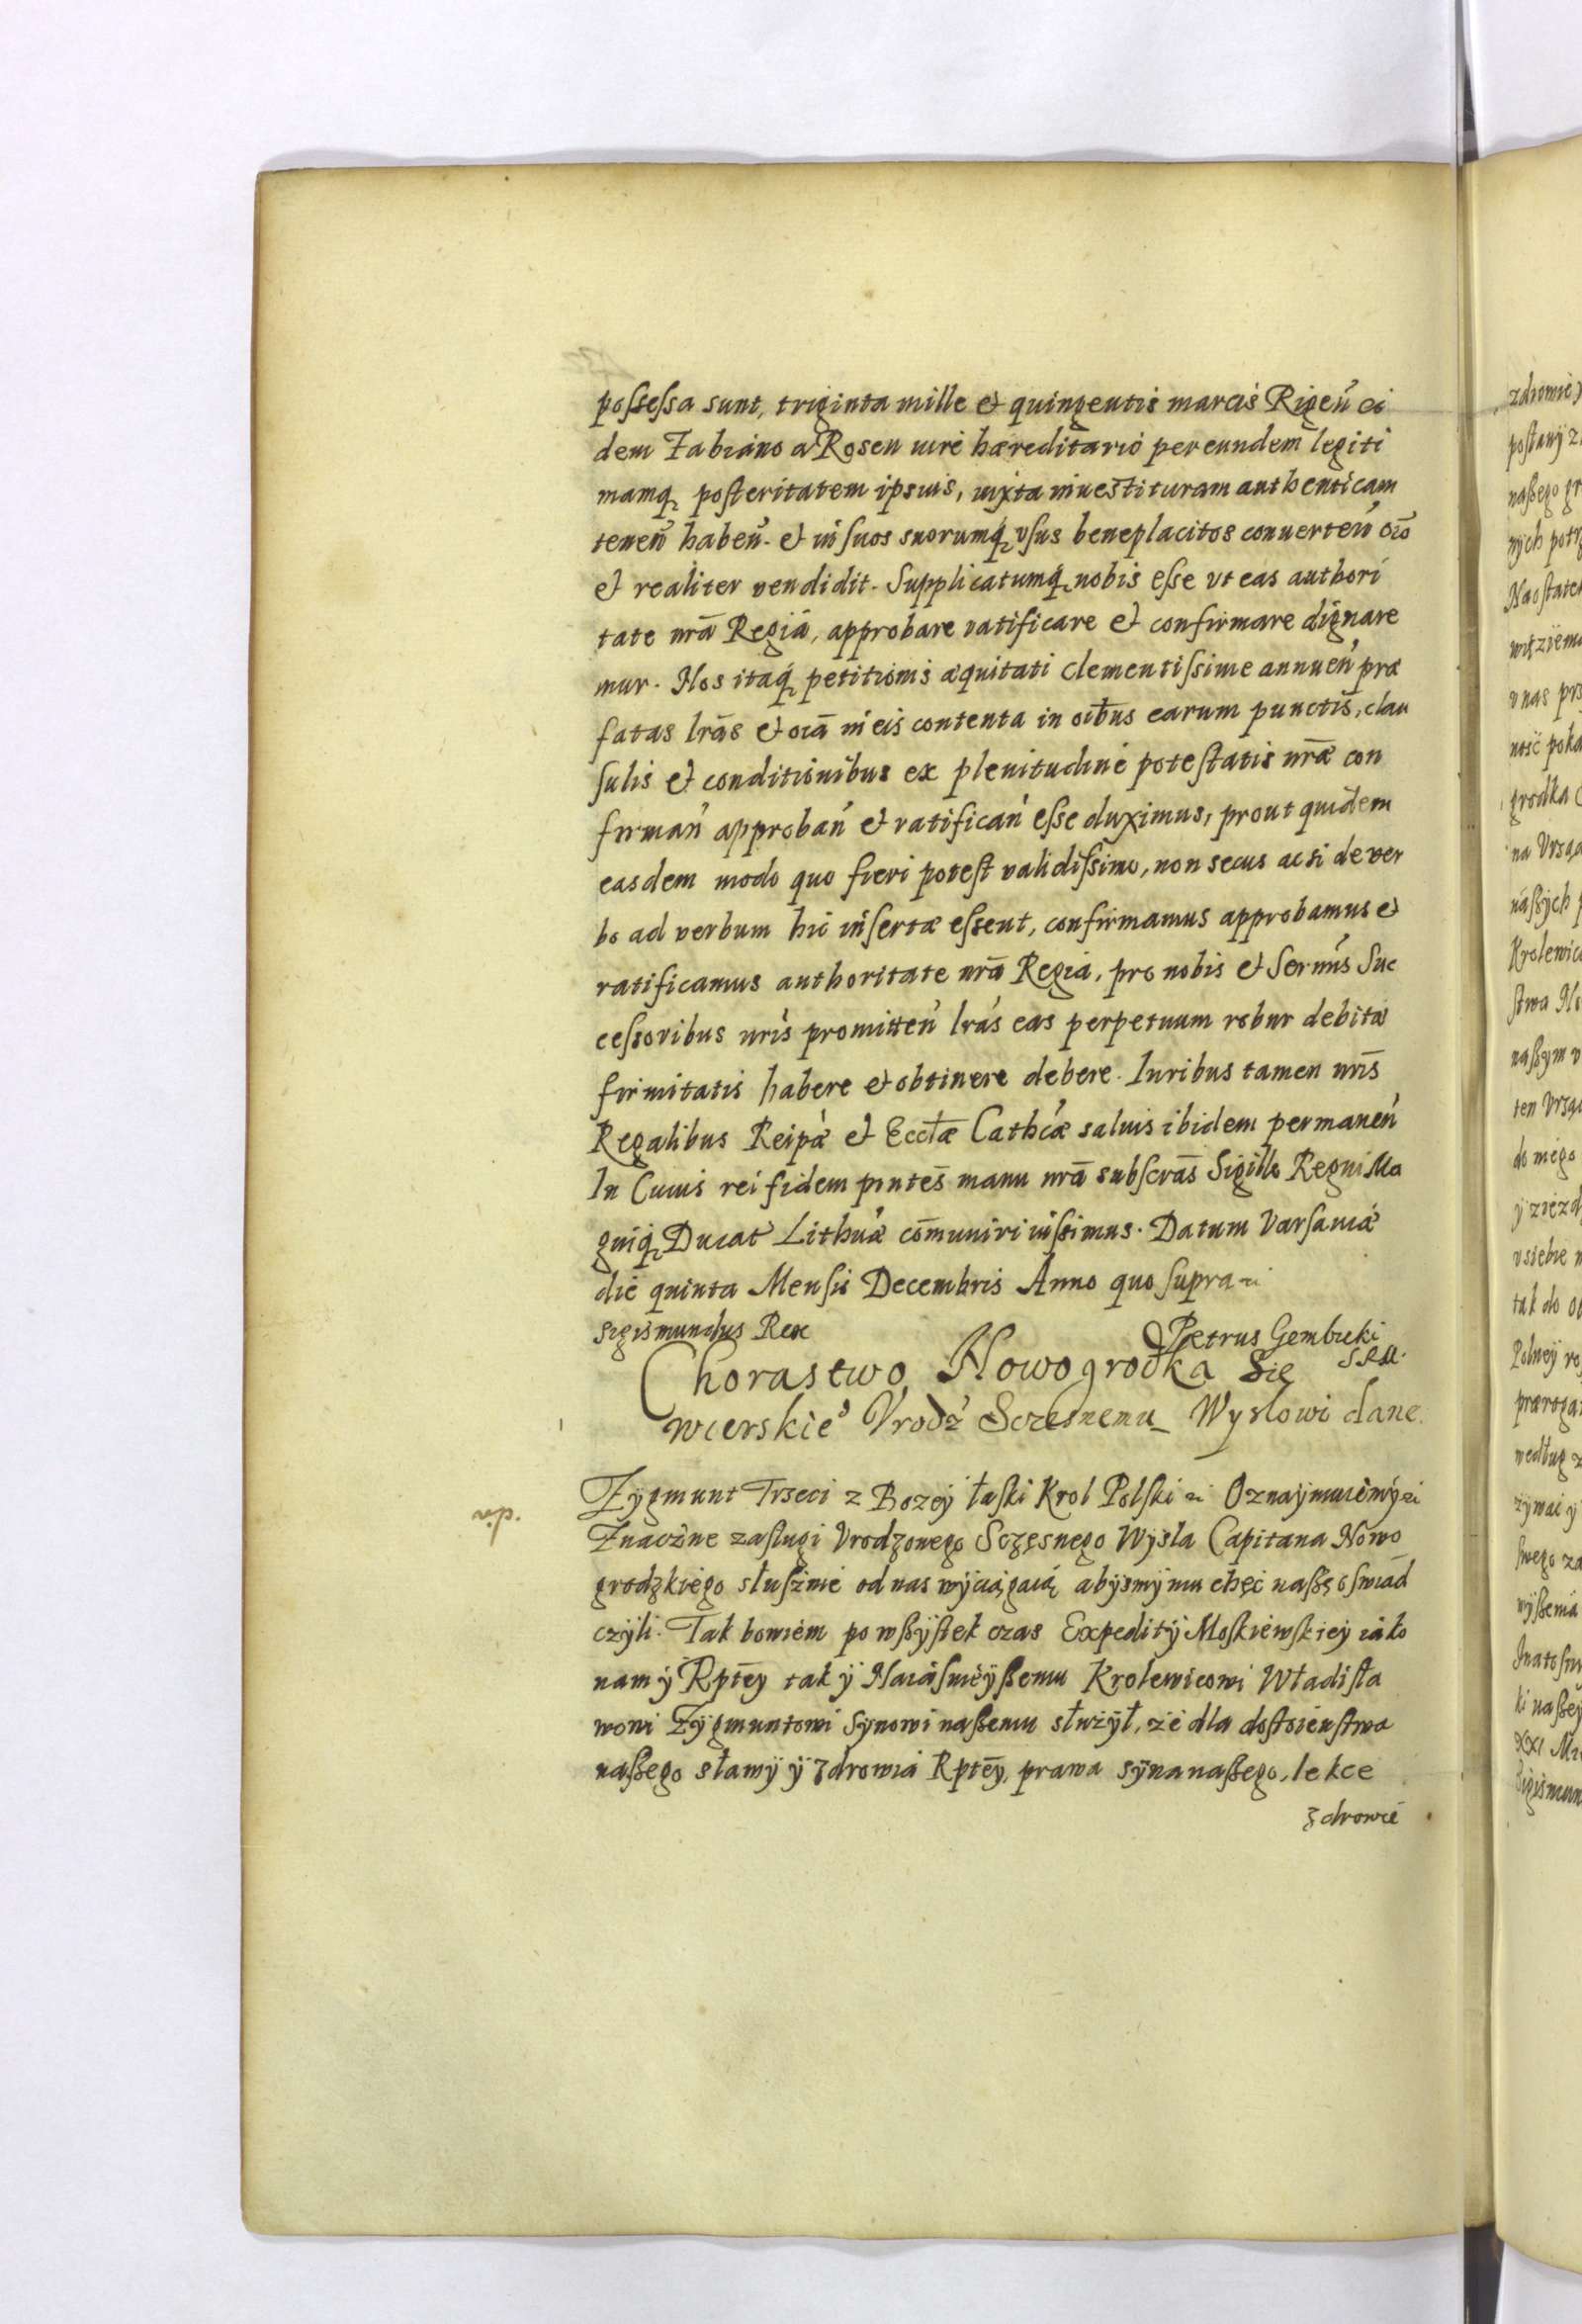 possessa sunt, triginta mille et quingentis marcis Rigeñ ei
dem Fabiano a Rosen iure hæreditario per eundem legiti
mamq̨ posteritatem ipsius, iuxta inuestituram authenticam
teneñ habeñ. et in suos suorumq̨ vsus beneplacitos conuerteñ oīo
et realiter vendidit. Supplicatumq̨ nobis esse vt eas authori
tate nrā Regiā, approbare ratificare et confirmare dignare
mur. Nos itaq̨ petitionis æquitati clementissime annueñ præ
fatas lrās et oīa in eis contenta in oībus earum punctis, clau
sulis et conditionibus ex plenitudine potestatis nrāe con
firmañ approbañ et ratificañ esse duximus, prout quidem
easdem modo quo fieri potest validissimo, non secus ac si de ver
bo ad verbum hic insertæ essent, confirmamus approbamus et
ratificamus authoritate nrā Regia, pro nobis et Sermis Suc
cessoribus nris promitteñ lrās eas perpetuum robur debitæ
firmitatis habere et obtinere debere. Iuribus tamen nrīs
Regalibus Reipæ et Eccłæ Cathcæ saluis ibidem permaneñ
In Cuius rei fidem pñtes manu nrā subscrās Sigillo Regni Ma
gniq̨ Ducat Lithuæ cōmuniri iussimus. Datum Varsauiæ
die quinta Mensis Decembris Anno quo supra
Sigismundus Rex Petrus Gembicki
S R M.
Chorastwo Nowogrodka Sie
wierskie° Vrodz Sczesnemu Wyslowi dane.
Zÿgmunt Trzeci z Bozeÿ łaski Krol Polski Oznaÿmuiemÿ
Znaczne zasługi Vrodzonego Sczęsnego Wÿsla Capitana Nowo
grodzkiego słusznie od nas wÿciągaią abÿsmÿ mu chęć naszę oswiad
czÿli. Tak bowiem po wszÿstek czas Expeditÿ Moskiewskieÿ iako
nam ÿ Rptēy tak ÿ Naiasnieÿszemu Krolewicowi Władisła
wowi Zÿgmuntowi Sÿnowi naszemu słuzÿł, ze dla dostoienstwa
naszego sławÿ ÿ zdrowia Rptēy, prawa sÿna naszego, lekce
zdrowie